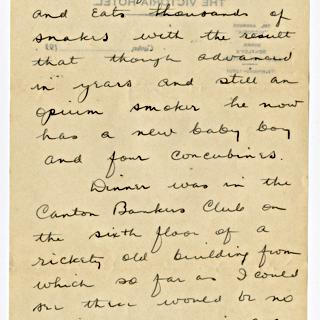 THE VICTORIA HOTEL
and eats thousands of
snakes with the result
that though advanced
in years and still an
opium smoker he now
has a new baby boy
and four concubines.
Dinner was in the
Canton Bankers Club on
the sixth floor of a
rickety old building from
which so far as I could
see there would be no